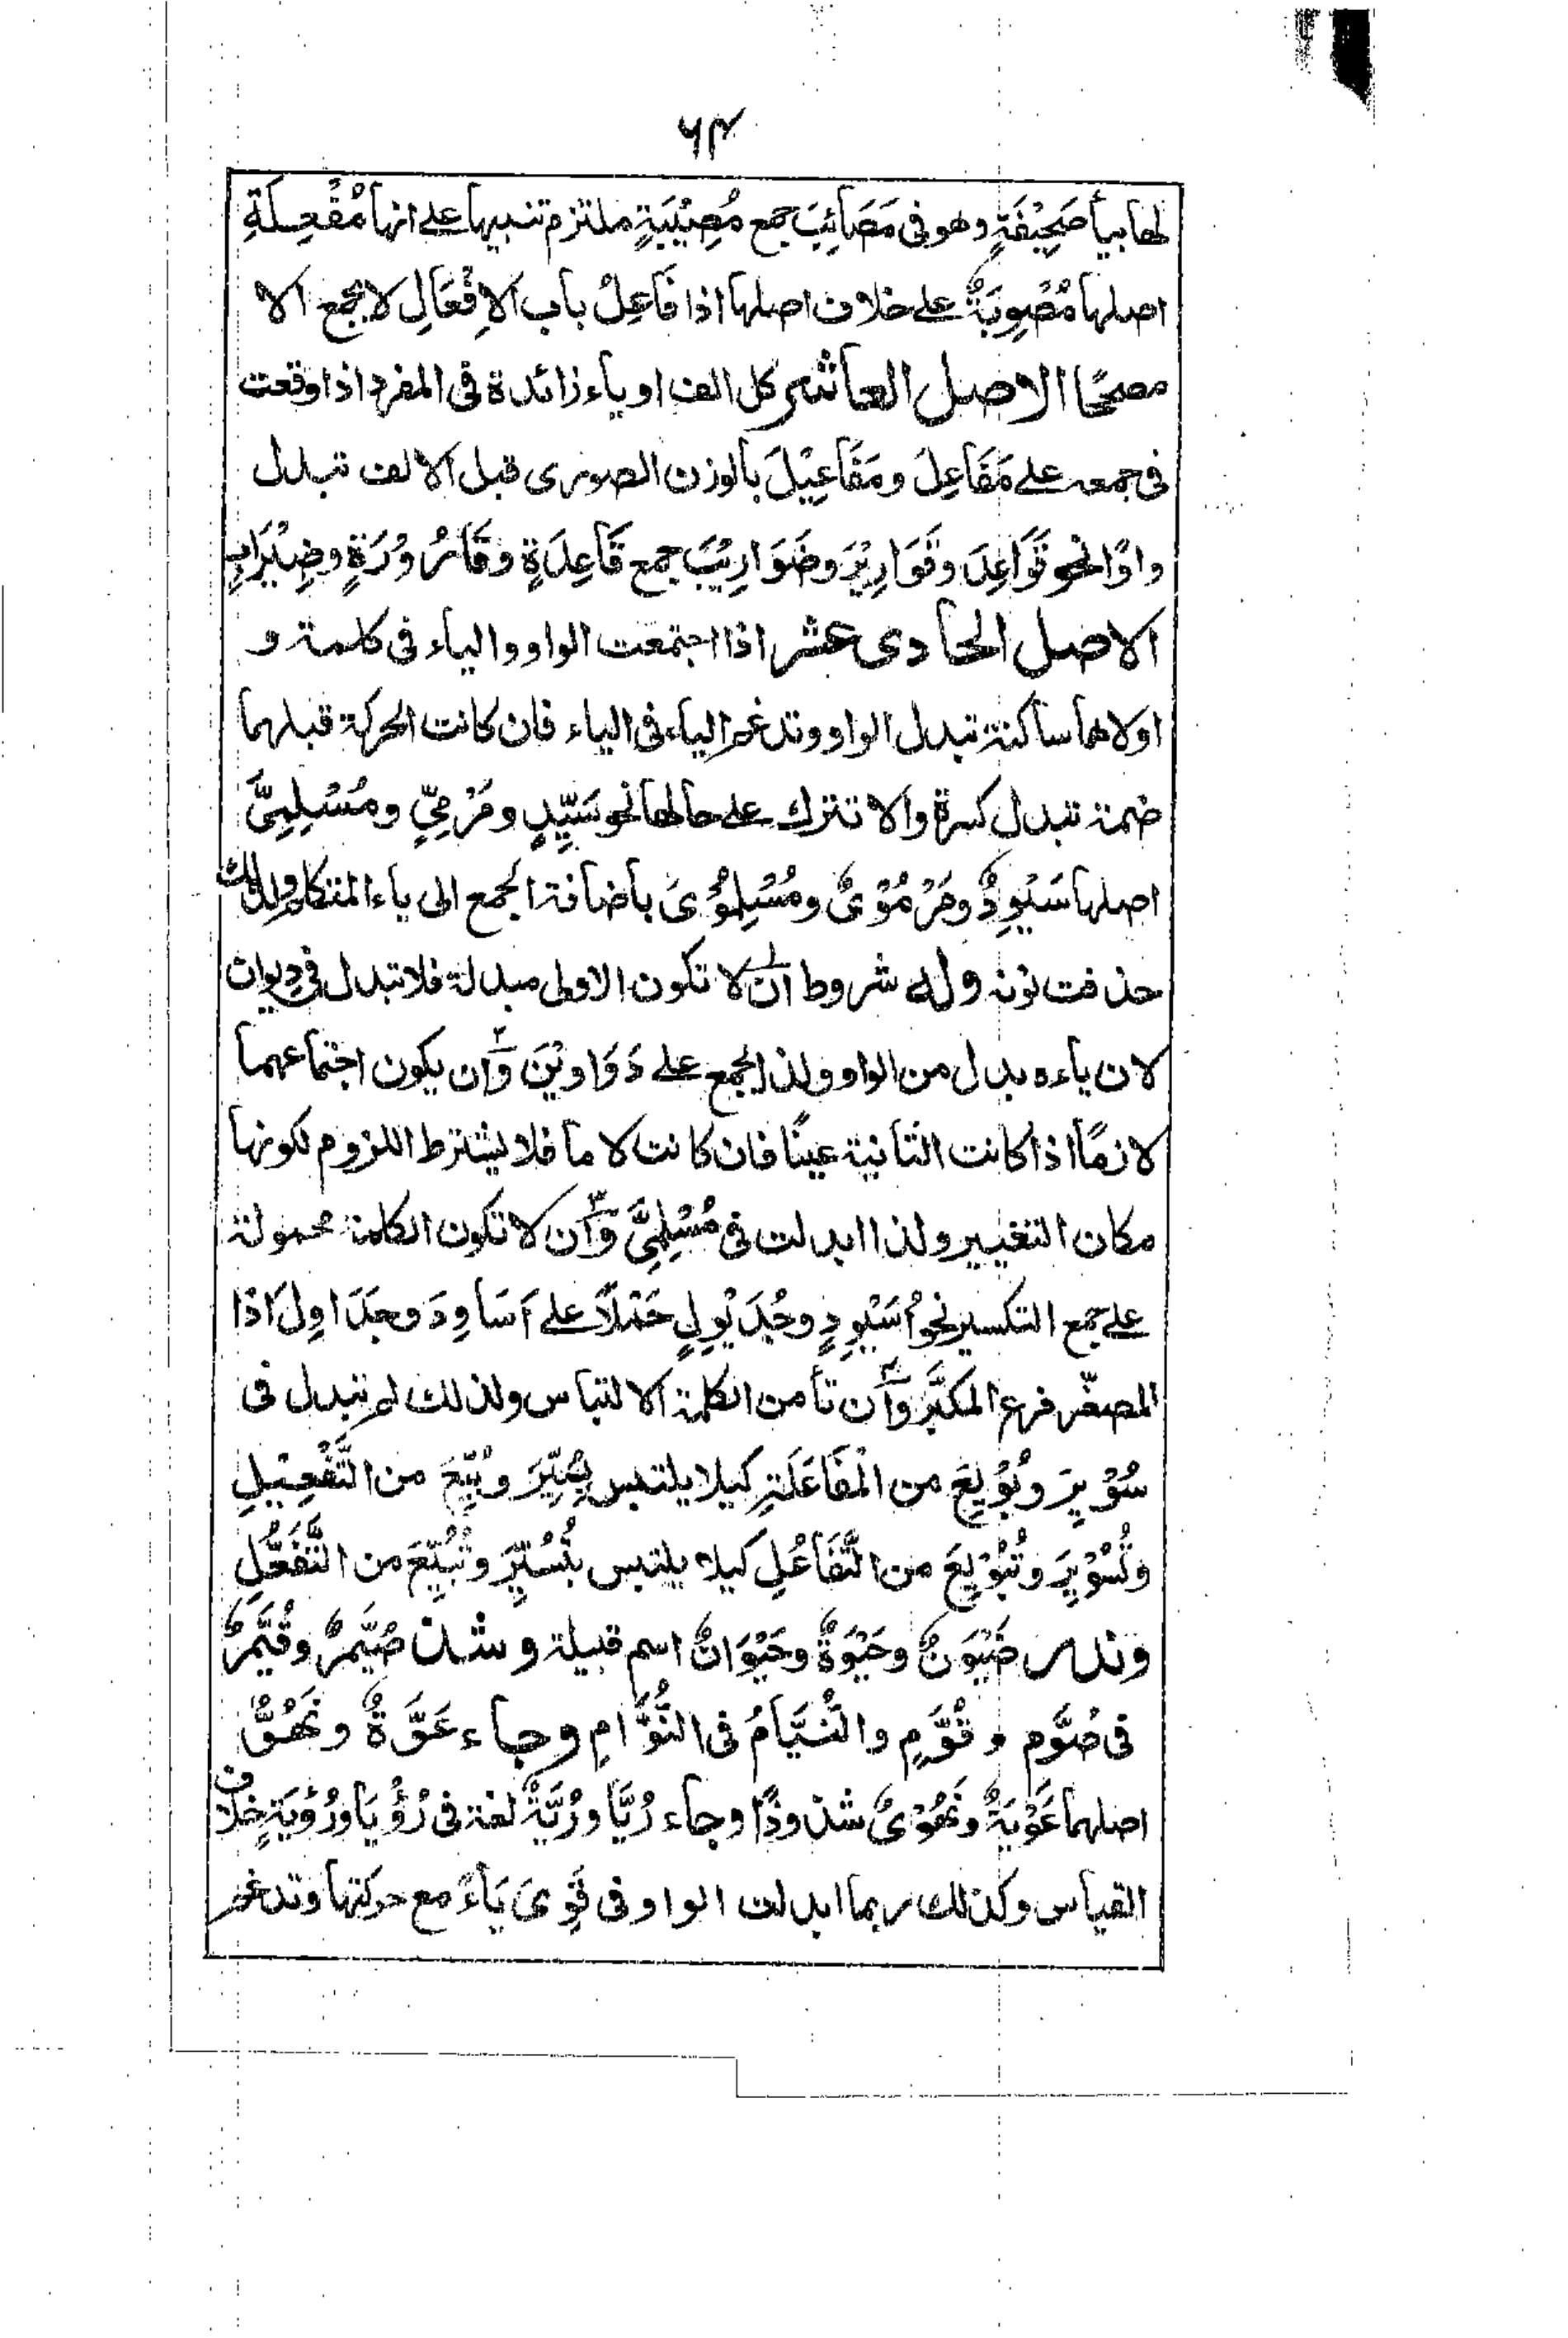 ۶۴
لها بيأ صَحِيْفَةٍ وهو فى مَصَائِبَ جمع مُصِيْبَةٍ ملتزم تنبيها على انها مُفْعِلَةٌ
اصلها مُصْوِبَةٌ على خلاف اصلها اذا فَاعِلُ باب الاِفْعَالِ لا يجمع الا
مصححًا الاصل العاشر كل الف او ياء زائدة فى المفرد اذا وقعت
فى جمعه على مَفَاعِلَ ومَفَاعِيْلَ بالوزن الصورى قبل الالف تبدل
واوًا نحو قَوَاعِدَ وقَوَارِيْرَ وضَوَارِيْبَ جمع قَاعِدَةٍ وقَارُوْرَةٍ وضِيْرَابٍ
الاصل الحادى عشر اذا اجتمعت الواو والياء فى كلمة و
اولاهما ساكنة تبدل الواو وتدغم الياء فى الياء فان كانت الحركة قبلهما
ضمة تبدل كسرة والا تترك على حالها نحو سَيِّدٍ ومَرْمِىٍّ ومُسْلِمِىَّ
اصلها سَيْوِدٌ ومَرْمُوْىٌ ومُسْلِمُوْىَ باضافة الجمع الى ياء المتكلم ولذلك
حذفت نونه وله شروط ان لا تكون الاولى مبدلة فلا تبدل فى دِيوان
لان ياءه بدل من الواو ولذا يجمع على دَوَاوِيْنَ وَان يكون اجتماعهما
لازمًا اذا كانت الثانية عينًا فان كانت لاما فلا يشترط اللزوم لكونها
مكان التغيير ولذا ابدلت فى مُسْلِمِىَّ وَان لا تكون الكلمة محمولة
على جمع التكسير نحو اُسَيْوِدٍ وجُدَيْوِلٍ حَمْلًا على اَسَاوِدَ وجَدَاوِلَ اذا
المصغّر فرع المكبَّر وَان تأمن الكلمة الالتباس ولذلك لم تبدل فى
سُوْيِرَ وبُوْيِعَ من الْمُفَاعَلَةِ كيلا يلتبس بِسُيِّرَ وبُيِّعَ من التَّفْعِيْلِ
وتُسُوْيِرَ وتُبُوْيِعَ من التَّفَاعُلِ كيلا يلتبس بتُسُيِّرَ وتُبُيِّعَ من التَّفَعُّلِ
وندر ضَيْوَنٌ وحَيْوَةٌ وحَيْوَانٌ اسم قبيلة وشذ صُيَّمٌ وقُيَّمٌ
فى صُوَّمٍ وقُوَّمٍ والنُّيَّامُ فى النُّوَّامِ وجاء عَوَّةٌ ونَهُوٌّ
اصلهما عَوْيَةٌ ونَهُوْىٌ شذوذًا وجاء رُيَّا ورُيَّةٌ لغة فى رُؤْيَا ورُؤْيَةٍ خلاف
القياس وكذلك ربما ابدلت الواو فى قَوِىَ يَاءً مع حركتها وتدغم